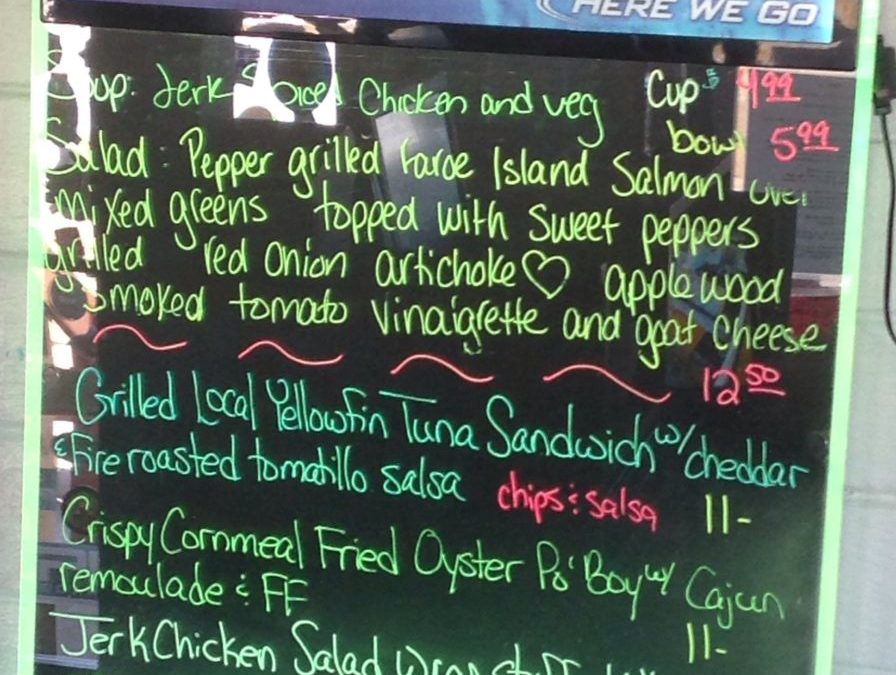 HERE WE GO
Soup: Jerk Spiced Chicken and veg Cup $ 4.99
bowl 5.99
Salad: Pepper grilled Faroe Island Salmon over
mixed greens topped with sweet peppers
grilled red onion artichoke♡ applewood
smoked tomato vinaigrette and goat cheese
12.50
Grilled Local Yellowfin Tuna Sandwich w/ cheddar
& Fire roasted tomatillo salsa chips & salsa 11-
Crispy Cornmeal Fried Oyster Po' Boy w/ Cajun
remoulade & FF 11-
Jerk Chicken Salad Wrap